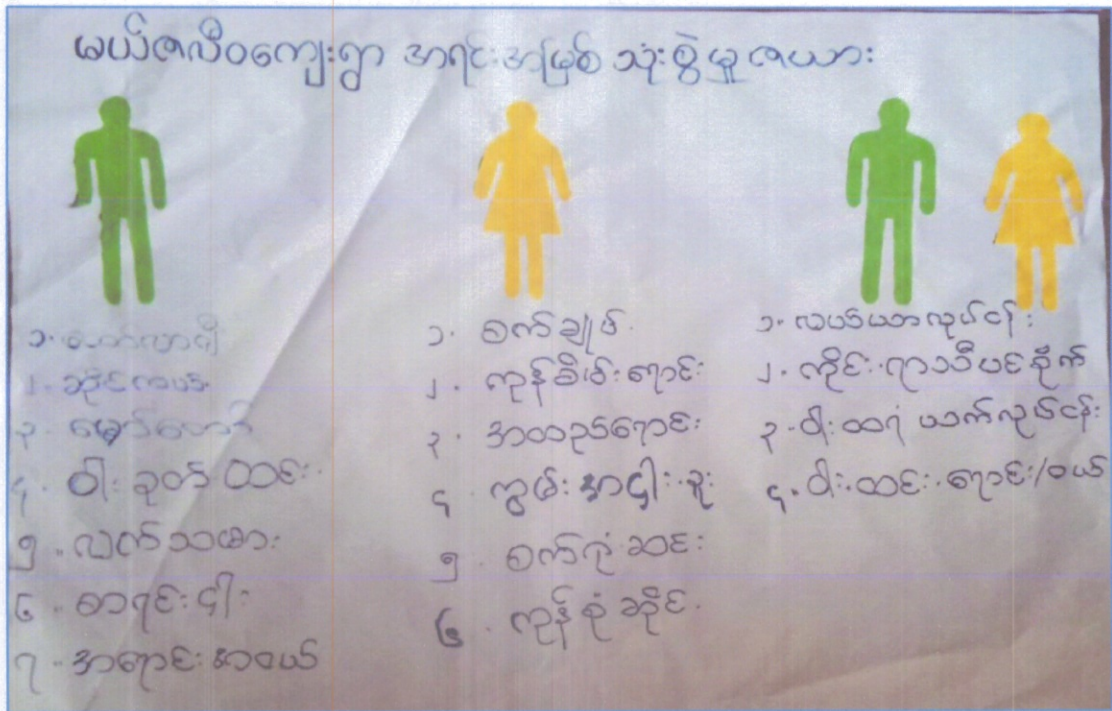 မယ်ဇလီဝကျေးရွာ အရင်းအမြစ် သုံးစွဲမှု ဇယား
၁.
၂. ဆိုင်ကယ်
၃. မျှော်တော်
၄. ဝါး ခုတ် ထင်း
၅. လက်သမား
၆. စာရင်း ငှါး
၇. အရောင်း အဝယ်
၁. စက်ချုပ်
၂. ကုန်စိမ်းရောင်း
၃. အထည်ရောင်း
၄. ကွမ်း အငှါး ခူး
၅. စက်ရုံ ဆင်း
၆. ကုန် စုံ ဆိုင်
၁. လယ်ယာလုပ်ငန်း
၂. ကိုင်း ရာသီပင်စိုက်
၃. ဝါး ထရံ ယက်လုပ်ငန်း
၄. ဝါး ထင်း ရောင်း/ဝယ်